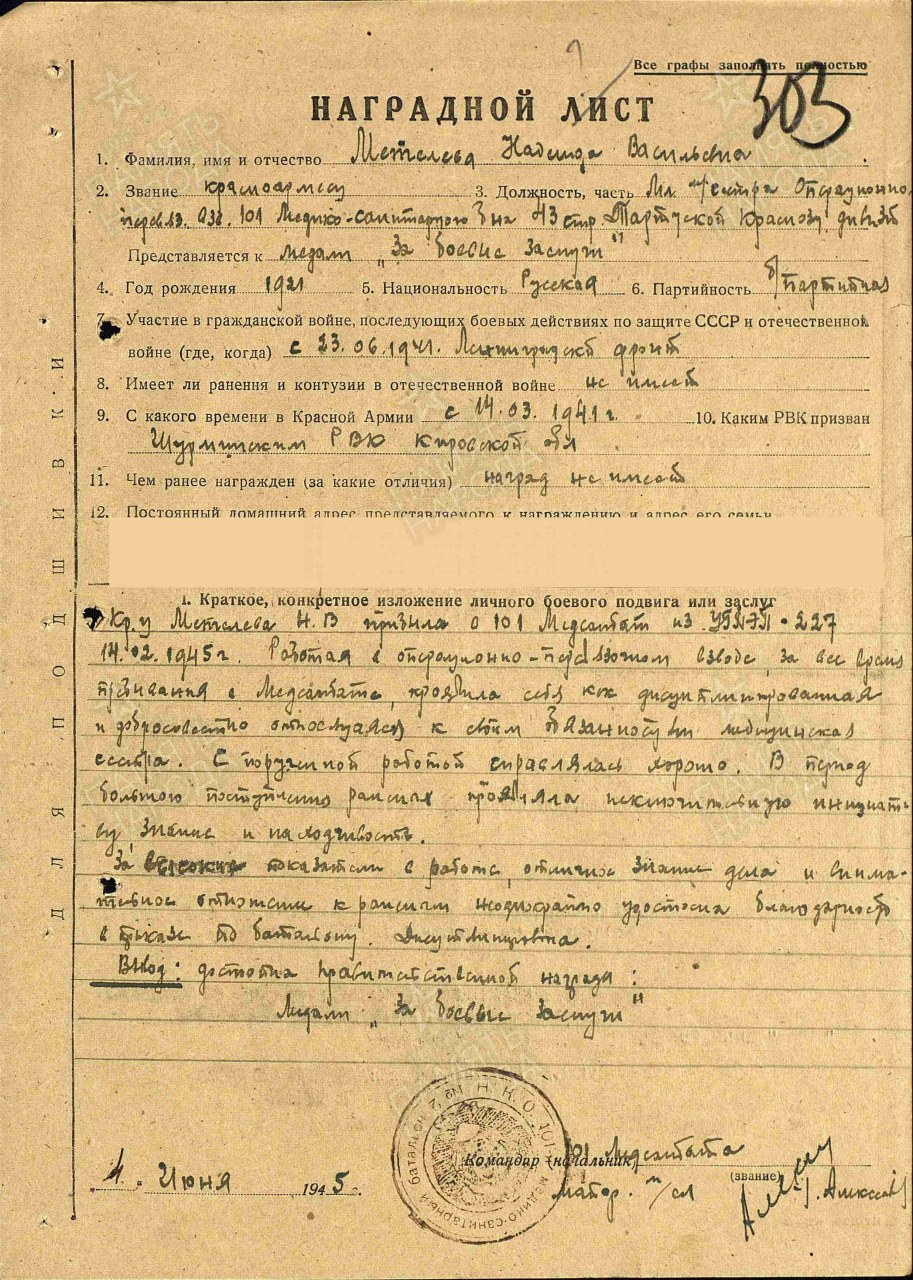 Все графы заполнять полностью
303
НАГРАДНОЙ ЛИСТ
1. Фамилия, имя и отчество Метелева Надежда Васильевна
2. Звание красноармеец 3. Должность, часть Мл. м/сестра Операционно
перевяз. взв. 101 Медико-санитарного б-на 43 стр. Тартуской Краснозн. дивиз.
Представляется к медали „За боевые заслуги"
4. Год рождения 1921 5. Национальность Русская 6. Партийность б/партийная
7. Участие в гражданской войне, последующих боевых действиях по защите СССР и отечественной
войне (где, когда) с 23.06.1941. Ленинградский фронт
8. Имеет ли ранения и контузии в отечественной войне не имеет
9. С какого времени в Красной Армии с 14.03.1941 г. 10. Каким РВК призван
Шурминским РВК Кировской обл
11. Чем ранее награжден (за какие отличия) наград не имеет
12. Постоянный домашний адрес представляемого к награждению и адрес его семьи
I. Краткое, конкретное изложение личного боевого подвига или заслуг
Кр-ц Метелева Н.В прибыла в 101 Медсанбат из 227
14.02.1945г. Работая в операционно-перевязочном взводе, за все время
пребывания в Медсанбате, проявила себя как дисциплинированная
и добросовестно относящаяся к своим обязанностям медицинская
сестра. С порученной работой справлялась хорошо. В период
большого поступления раненых проявляла исключительную инициати-
ву знание и находчивость.
За высокие показатели в работе, отличное знание дела и внима-
тельное отношение к раненым неоднократно удостоена благодарности
в приказе по батальону. Дисциплинирована.
Вывод: достойна правительственной награды:
Медали „За боевые заслуги"
Н.К.О. 101 медико-санитарный батальон
Командир (начальник) 101 Медсанбата
(звание)
майор м/сл Алексеев
4 Июня 1945.
ДЛЯ ПОДШИВКИ